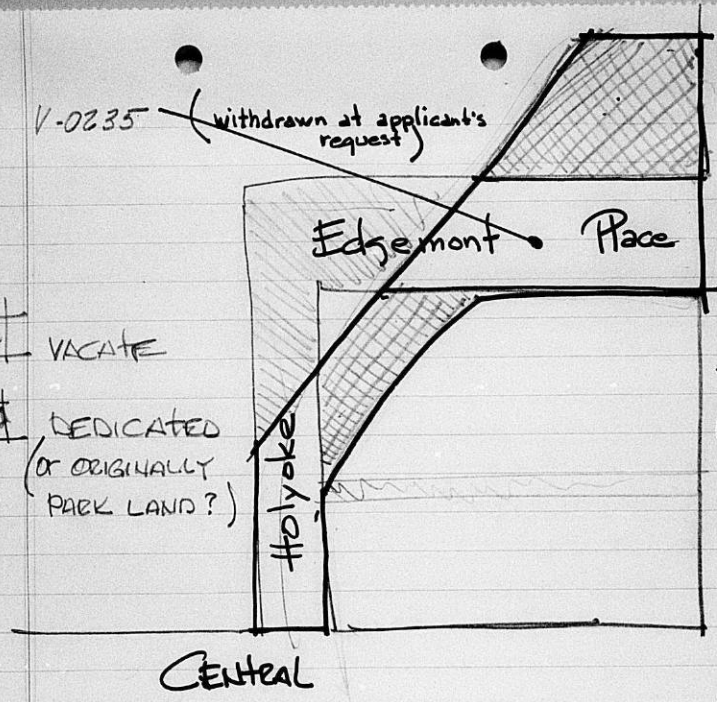 V-0235
(withdrawn at applicant's
request)
Edgemont Place
VACATE
DEDICATED
(OR ORIGINALLY
PARK LAND?)
Holyoke
CENTRAL